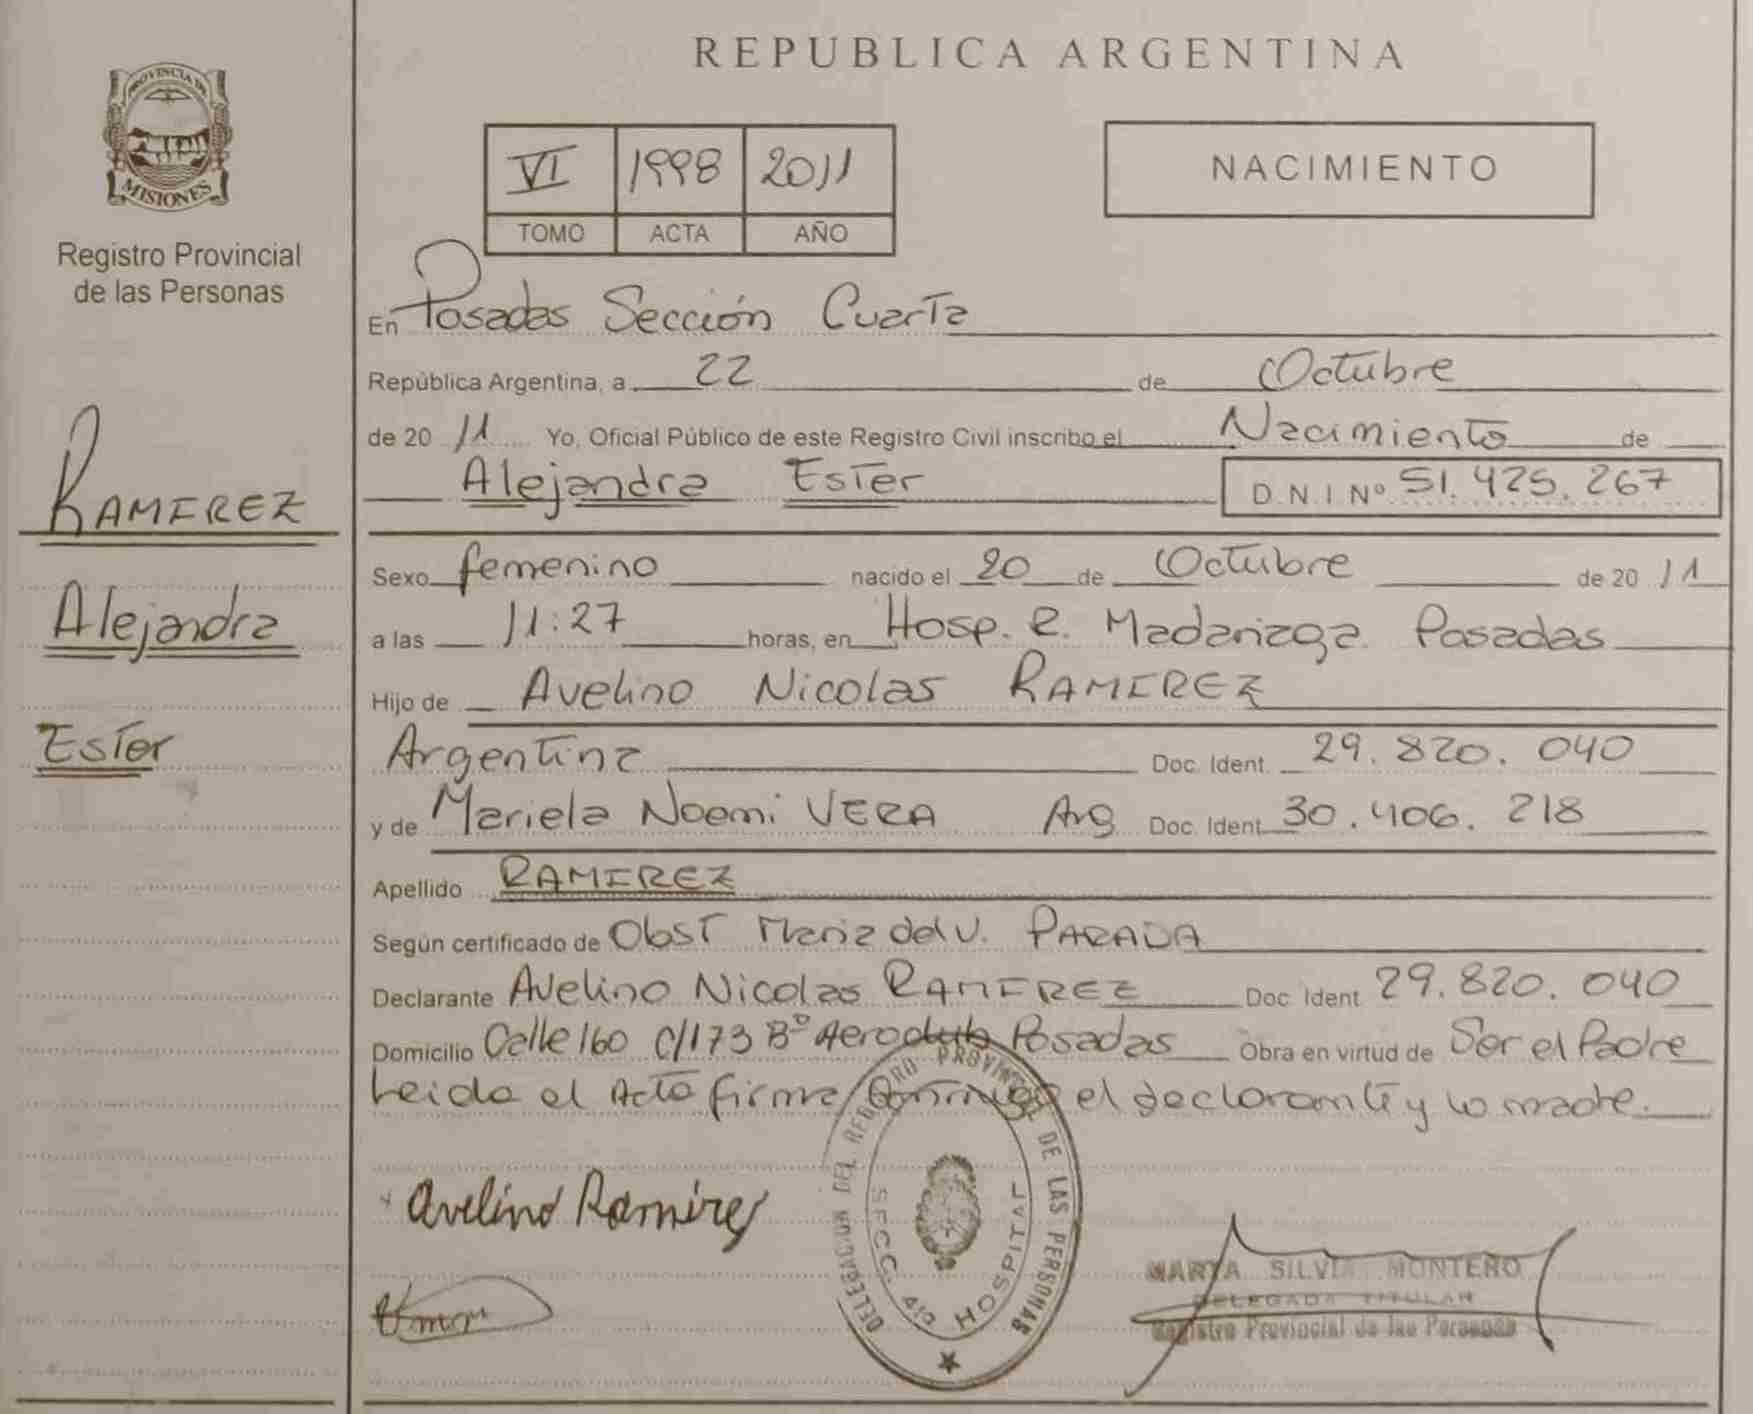 PROVINCIA DE
MISIONES
Registro Provincial
de las Personas
RAMIREZ
Alejandra
Ester
REPUBLICA ARGENTINA
VI 1998 2011
TOMO ACTA AÑO
NACIMIENTO
En Posadas Sección Cuarta
República Argentina, a 22 de Octubre
de 20 11 Yo, Oficial Público de este Registro Civil inscribo el Nacimiento de
Alejandra Ester D.N.I Nº 51.425.267
Sexo femenino nacido el 20 de Octubre de 20 11
a las 11:27 horas, en Hosp. R. Madariaga Posadas
Hijo de Avelino Nicolas RAMIREZ
Argentina Doc. Ident. 29.820.040
y de Mariela Noemi VERA Arg Doc. Ident. 30.406.218
Apellido RAMIREZ
Según certificado de Obst Maria del V. PARADA
Declarante Avelino Nicolas RAMIREZ Doc. Ident. 29.820.040
Domicilio Calle 160 C/173 Bº Aeroclub Posadas Obra en virtud de Ser el Padre
Leida el Acta firma conmigo el declarante y la madre.
Avelino Ramirez
DELEGACION DEL REGISTRO PROVINCIAL DE LAS PERSONAS
SECC. 4ta HOSPITAL
MARTA SILVIA MONTERO
DELEGADA TITULAR
Registro Provincial de las Personas